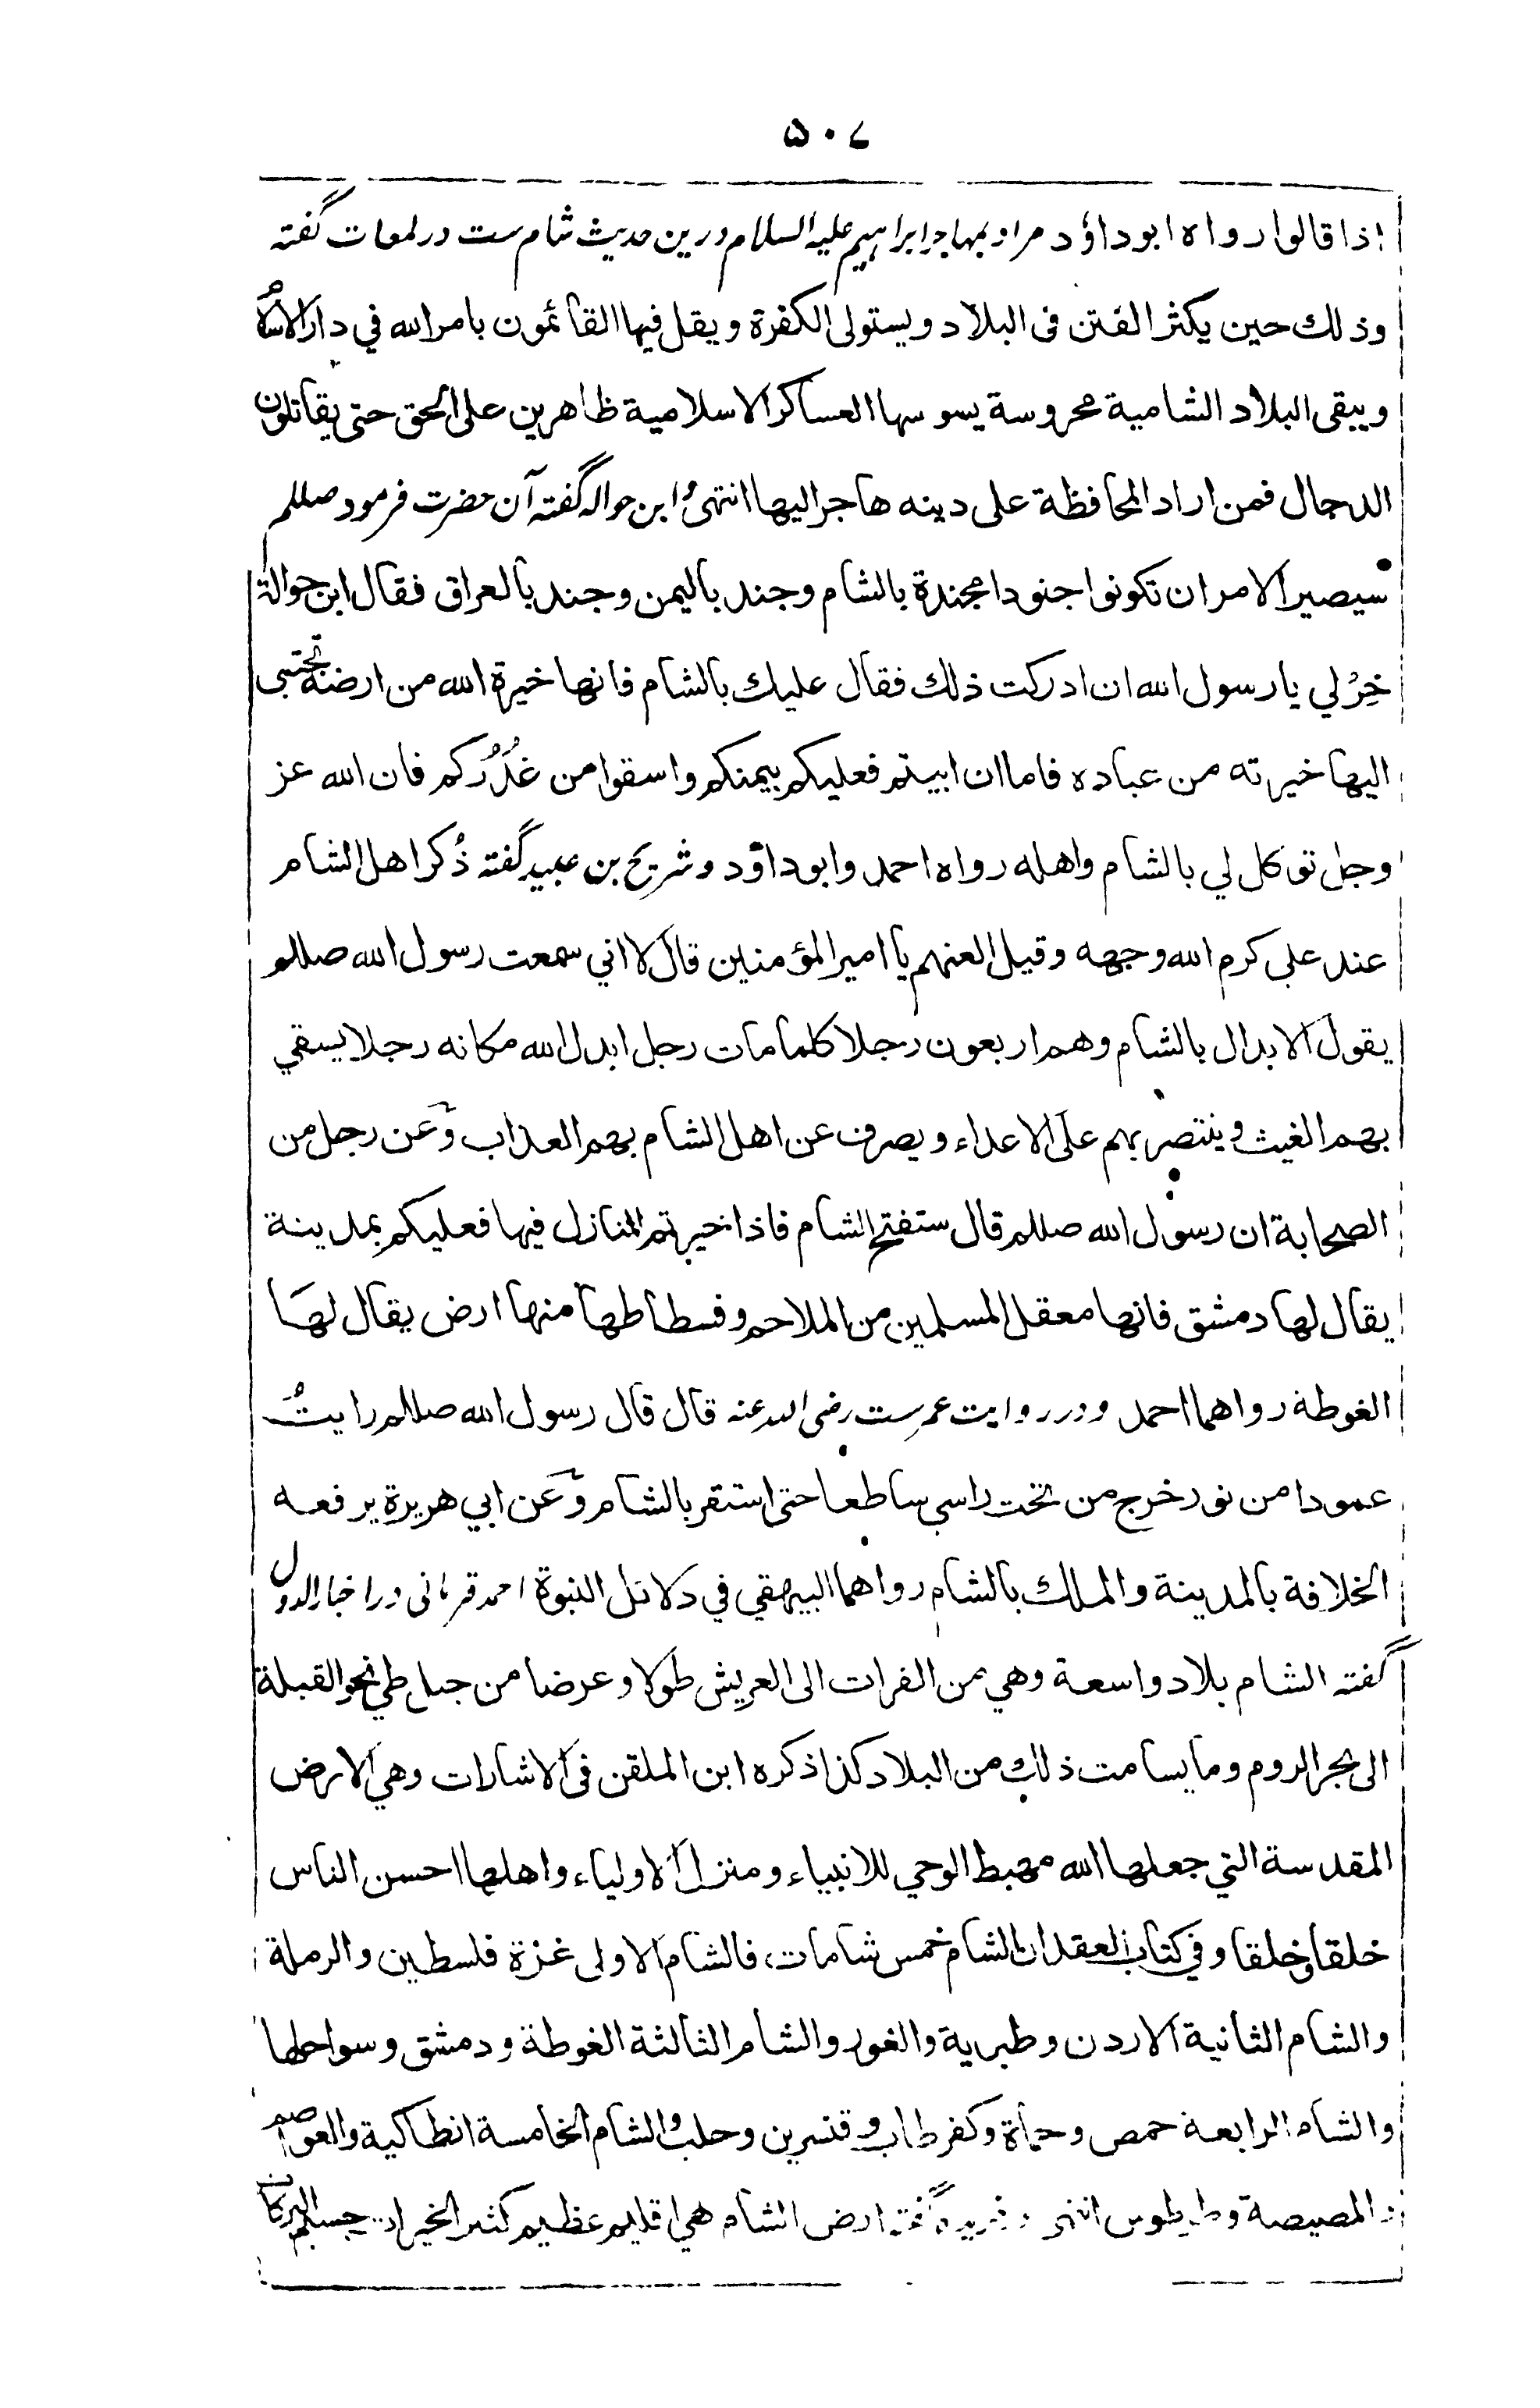 ۵۰۷
اذا قالوا رواه ابوداؤد مراد بمهاجر ابراهیم علیه السلام درین حدیث شام ست در لمعات گفته
وذلك حين يكثر الفتن فى البلاد ويستولى الكفرة ويقل فيها القائمون بامر الله في دار الاسلام
ويبقى البلاد الشامية محروسة يسوسها العساكر الاسلامية ظاهرين على الحق حتى يقاتلون
الدجال فمن اراد المحافظة على دينه هاجر اليها انتهى و ابن حواله گفته آن حضرت فرمود صللم
سيصير الامر ان تكونوا جنودا مجندة بالشام وجند باليمن وجند بالعراق فقال ابن حوالة
خِرْ لي يا رسول الله ان ادركت ذلك فقال عليك بالشام فانها خيرة الله من ارضه تجتبى
اليها خيرته من عباده فاما ان ابيتم فعليكم بيمنكم واسقوا من غُدُرُكم فان الله عز
وجل توكل لي بالشام واهله رواه احمد وابوداؤد و شریح بن عبید گفته ذُكر اهل الشام
عند علی كرم الله وجهه وقيل العنهم يا امير المؤمنين قال لا اني سمعت رسول الله صللم
يقول الابدال بالشام وهم اربعون رجلا كلما مات رجل ابدل الله مكانه رجلا يسقي
بهم الغيث وينتصر بهم على الاعداء ويصرف عن اهل الشام بهم العذاب وعن رجل من
الصحابة ان رسول الله صللم قال ستفتح الشام فاذا خيرتم المنازل فيها فعليكم بمدينة
يقال لها دمشق فانها معقل المسلمين من الملاحم وفسطاطها منها ارض يقال لها
الغوطة رواهما احمد ودر روایت عمرست رضی الله عنه قال قال رسول الله صللم رايتُ
عمودا من نور خرج من تحت راسي ساطعا حتى استقر بالشام وعن ابي هريرة يرفعه
الخلافة بالمدينة والملك بالشام رواهما البيهقي في دلائل النبوة احمد قرمانی در اخبار الدول
گفته الشام بلاد واسعة وهي من الفرات الى العريش طولا وعرضا من جبل طي نحو القبلة
الى بحر الروم وما يسامت ذلك من البلاد كذا ذكره ابن الملقن فى الاشارات وهي الارض
المقدسة التي جعلها الله مهبط الوحي للانبياء ومنزل الاولياء واهلها احسن الناس
خلقا وخلقا وفي كتاب العقد ان الشام خمس شامات، فالشام الاولى غزة فلسطين والرملة
والشام الثانية الاردن وطبرية والغور والشام الثالثة الغوطة ودمشق وسواحلها
والشام الرابعة حمص وحماة وكفرطاب وقنسرين وحلب والشام الخامسة انطاكية والعواصم
والمصيصة وطرطوس انتهى و گفته ارض الشام هي اقليم عظيم كثير الخيرات جسيم البركات